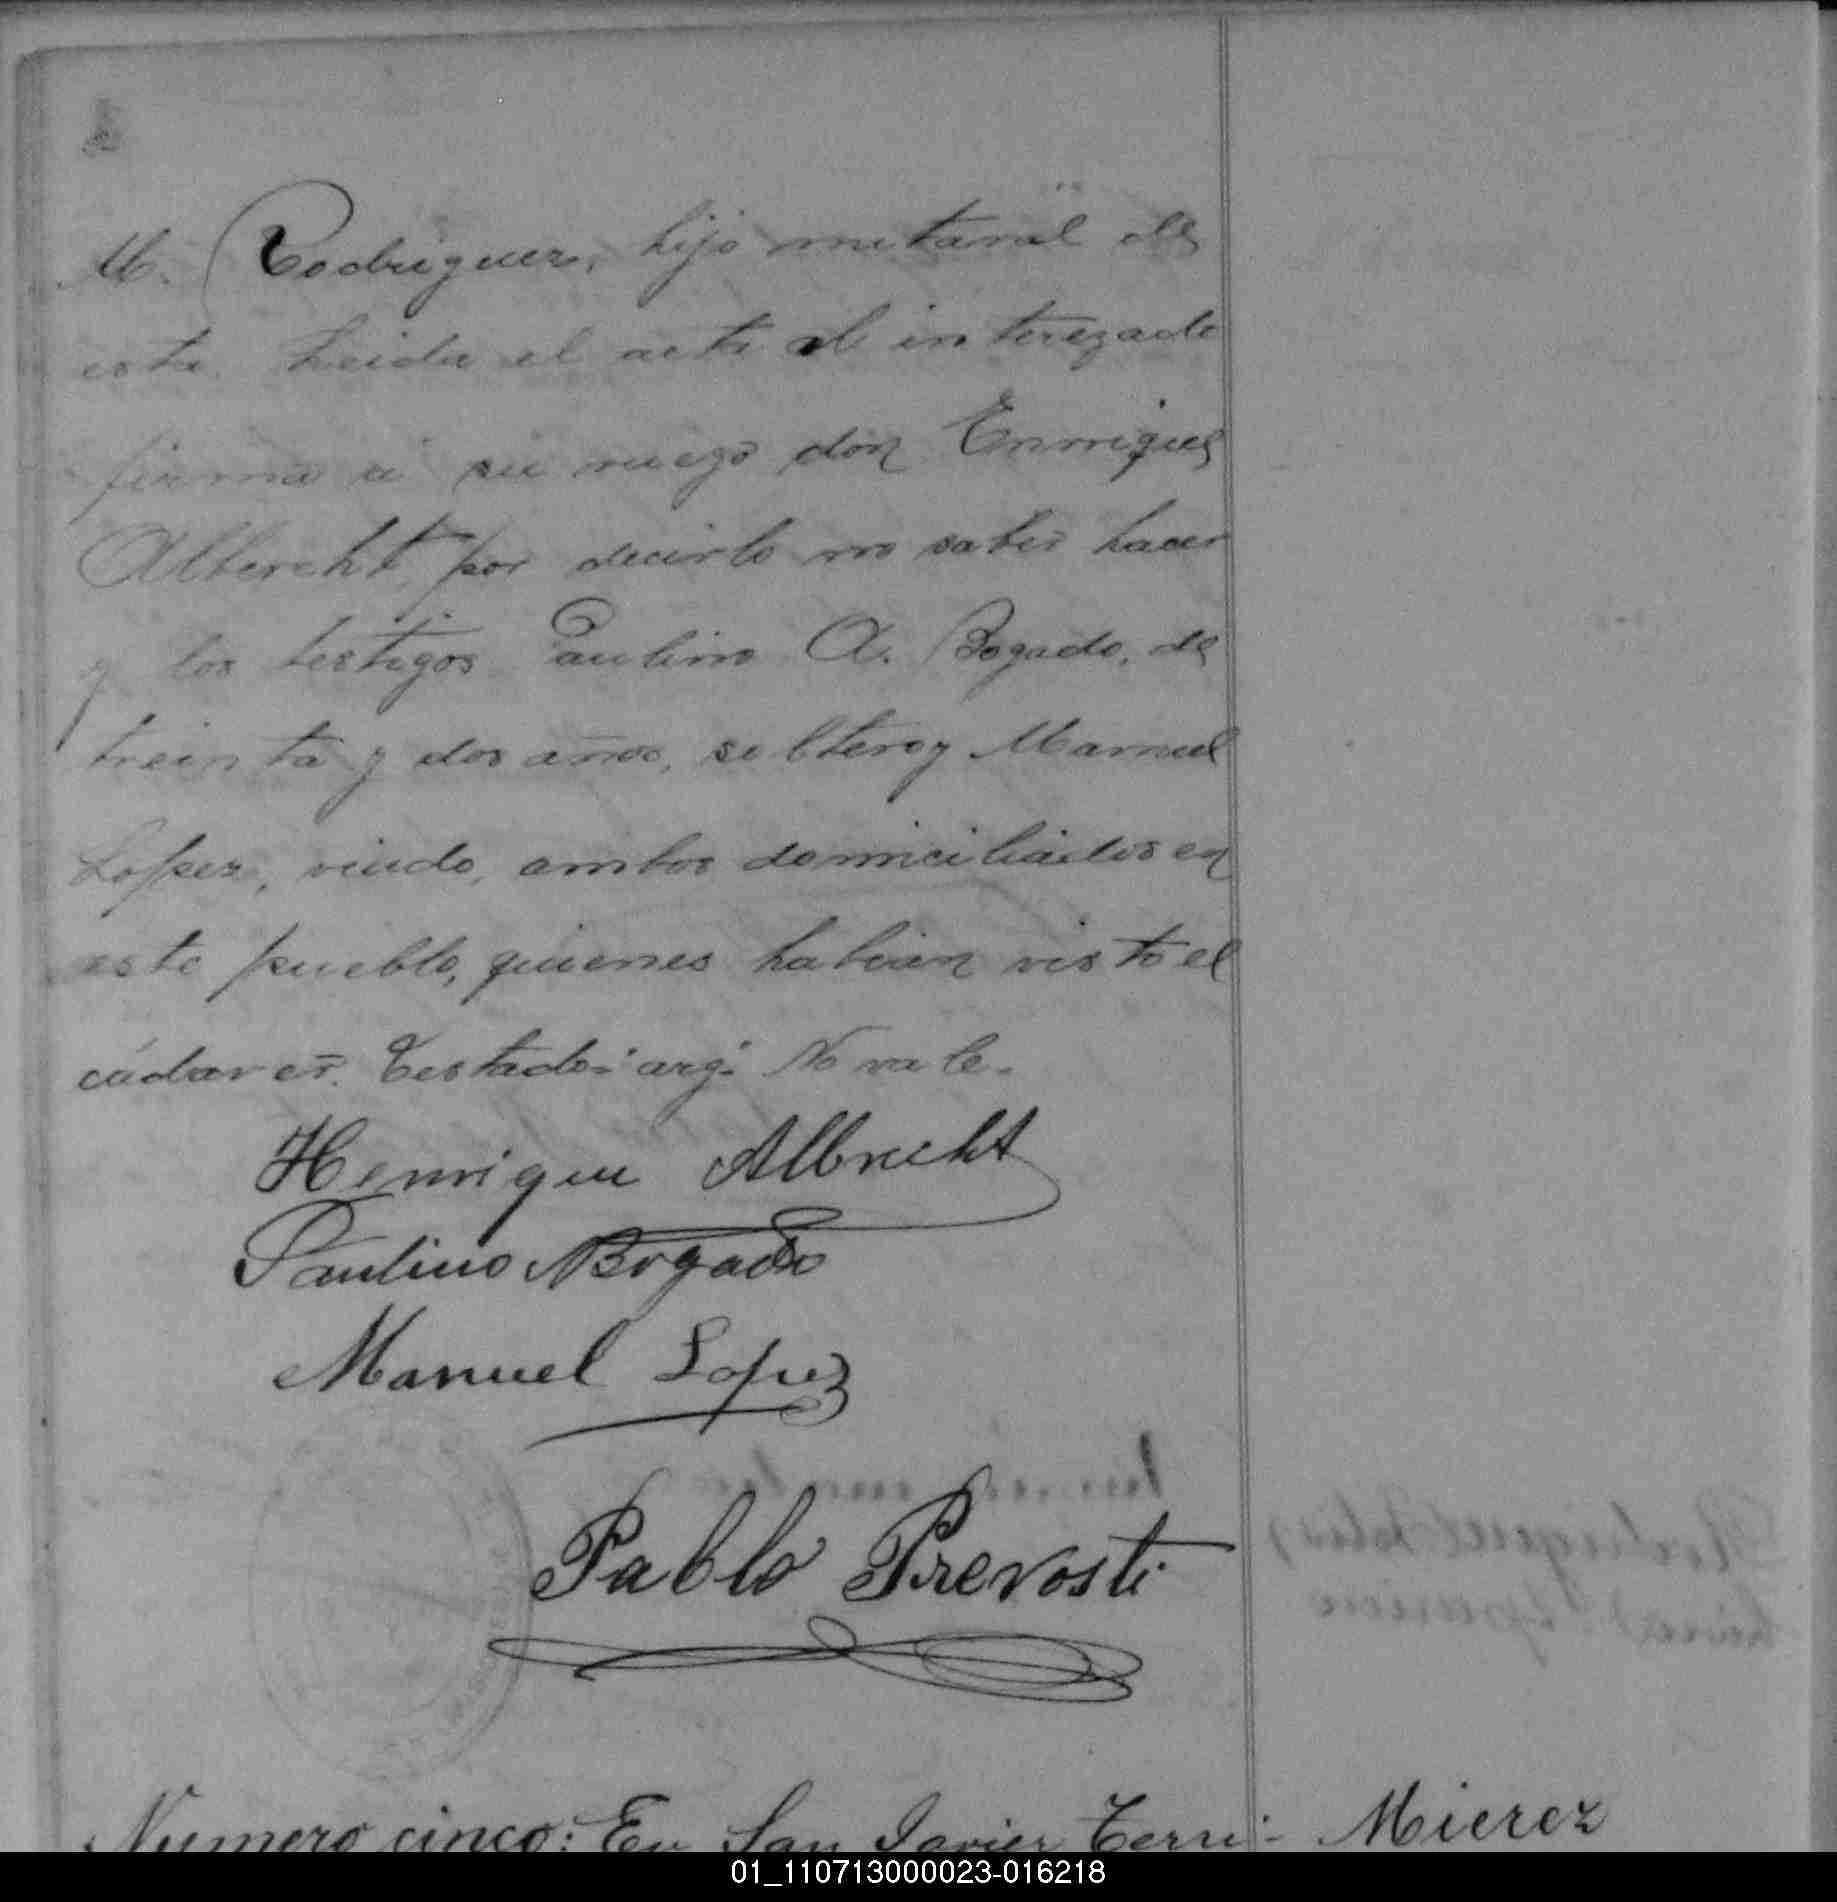 M. Rodriguez, hijo natural de
esta. Leida el acta el interezado
firma á su ruego don Enrrique
Albercht, por decirlo no saber hacer
y los testigos Paulino A. Bogado, de
treinta y dos años, soltero y Manuel
Lopez, viudo, ambos domiciliados en
este pueblo, quienes habian visto el
cádaver. Testado: arg: No vale.
Henrique Albrecht
Paulino A Bogado
Manuel Lopez
Pablo Prevosti
Numero cinco: En San Javier Terri-
Mierez
01_110713000023-016218